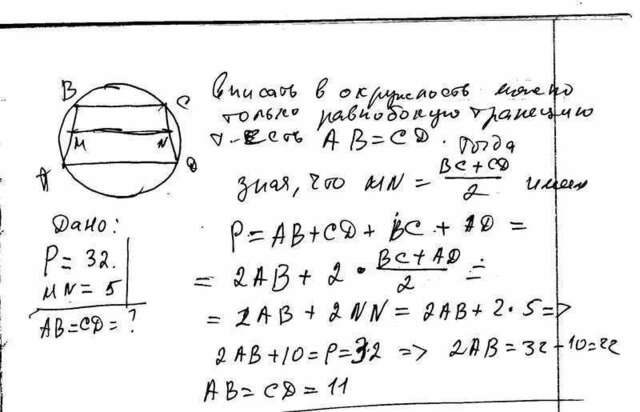 B
C
M
N
A
D
Дано:
P = 32.
MN = 5
AB = CD = ?
Вписать в окружность можно
только равнобокую трапецию
т-есть AB = CD. Тогда
зная, что MN = (BC + CD)/2 имеем
P = AB + CD + BC + AD =
= 2AB + 2 · (BC + AD)/2 =
= 2AB + 2NN = 2AB + 2·5 =>
2AB + 10 = P = 32 => 2AB = 32 - 10 = 22
AB = CD = 11